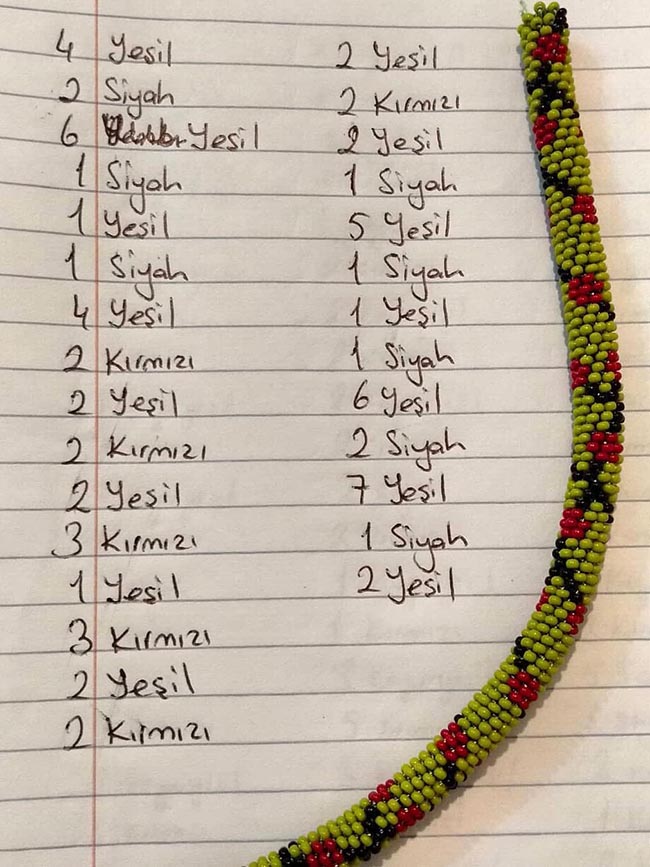 4 Yeşil
2 Siyah
6 Yeşil
1 Siyah
1 Yeşil
1 Siyah
4 Yeşil
2 Kırmızı
2 Yeşil
2 Kırmızı
2 Yeşil
3 Kırmızı
1 Yeşil
3 Kırmızı
2 Yeşil
2 Kırmızı
2 Yeşil
2 Kırmızı
2 Yeşil
1 Siyah
5 Yeşil
1 Siyah
1 Yeşil
1 Siyah
6 Yeşil
2 Siyah
7 Yeşil
1 Siyah
2 Yeşil